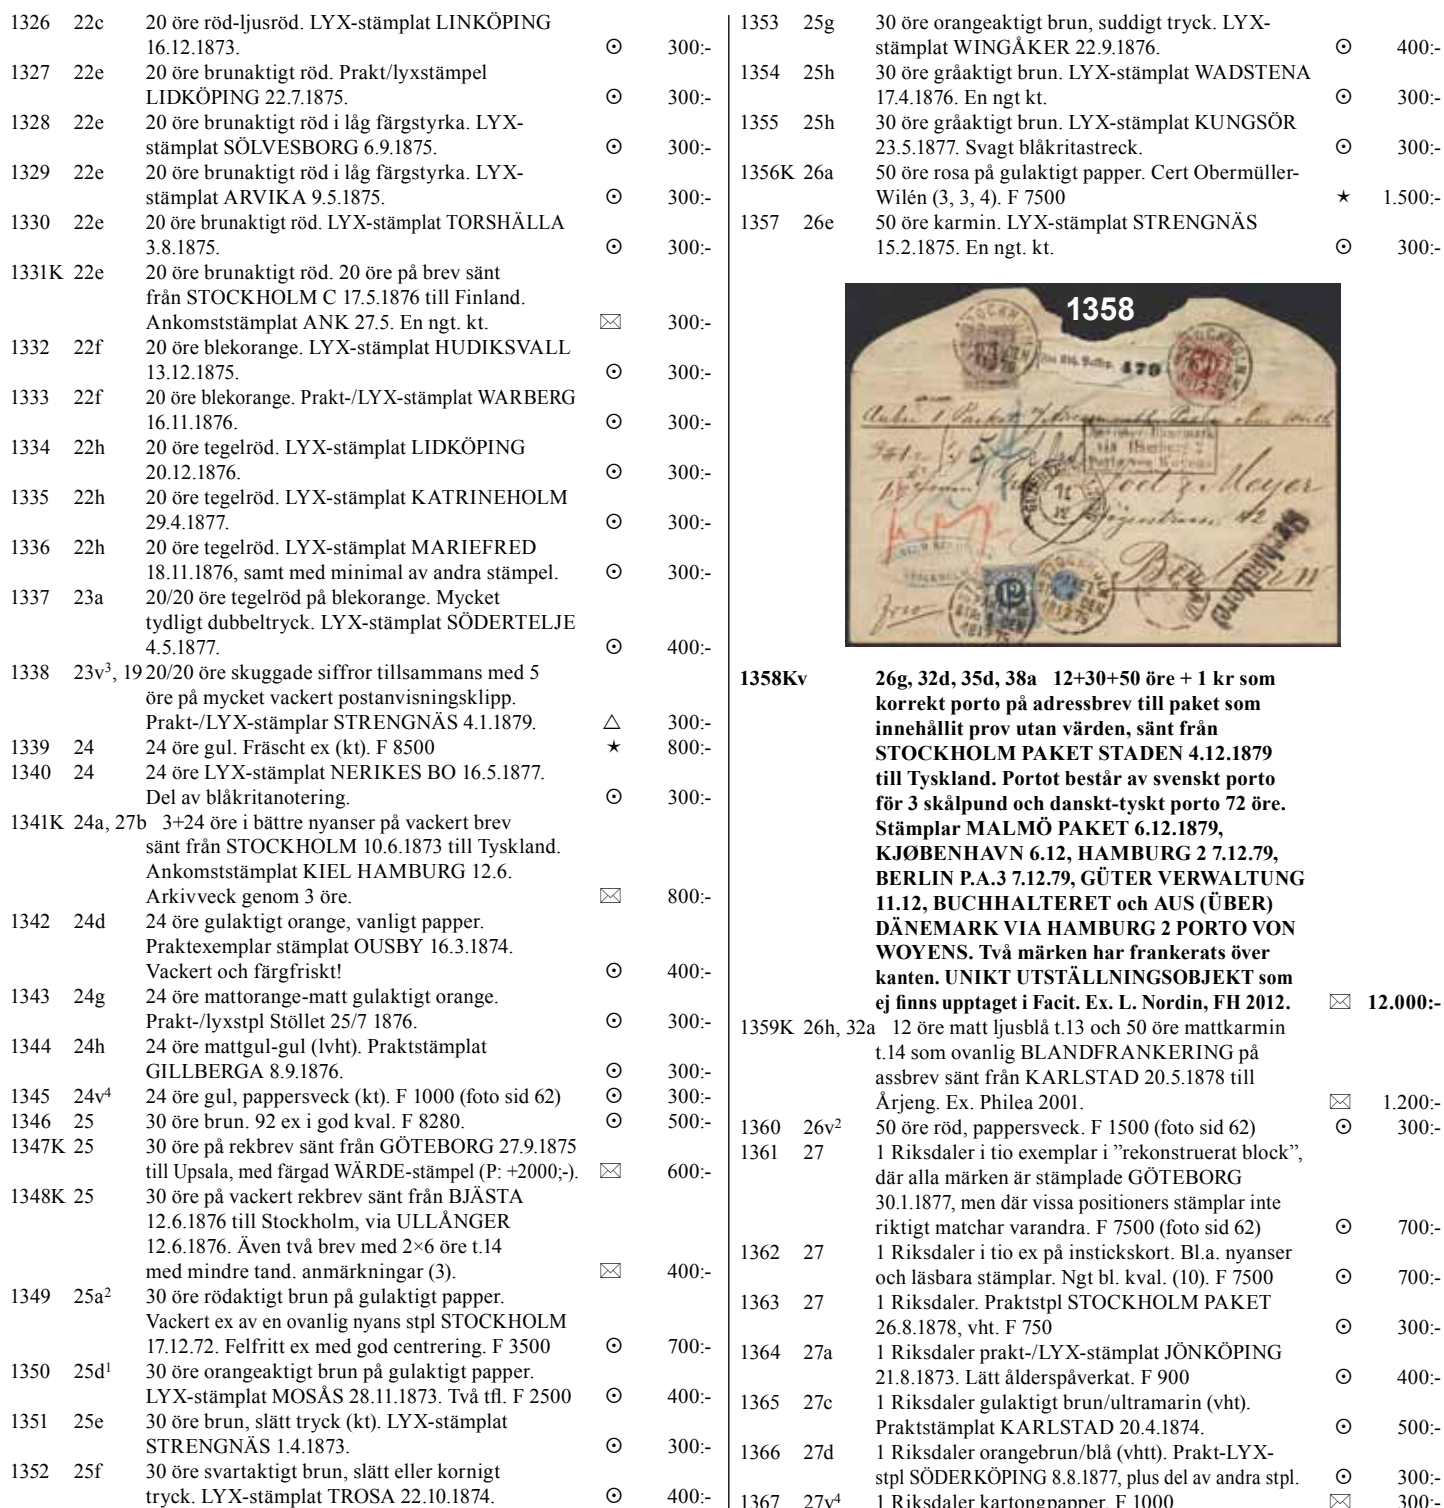 1326 22c 20 öre röd-ljusröd. LYX-stämplat LINKÖPING
16.12.1873. ⊙ 300:-
1327 22e 20 öre brunaktigt röd. Prakt/lyxstämpel
LIDKÖPING 22.7.1875. ⊙ 300:-
1328 22e 20 öre brunaktigt röd i låg färgstyrka. LYX-
stämplat SÖLVESBORG 6.9.1875. ⊙ 300:-
1329 22e 20 öre brunaktigt röd i låg färgstyrka. LYX-
stämplat ARVIKA 9.5.1875. ⊙ 300:-
1330 22e 20 öre brunaktigt röd. LYX-stämplat TORSHÄLLA
3.8.1875. ⊙ 300:-
1331K 22e 20 öre brunaktigt röd. 20 öre på brev sänt
från STOCKHOLM C 17.5.1876 till Finland.
Ankomststämplat ANK 27.5. En ngt. kt. ✉ 300:-
1332 22f 20 öre blekorange. LYX-stämplat HUDIKSVALL
13.12.1875. ⊙ 300:-
1333 22f 20 öre blekorange. Prakt-/LYX-stämplat WARBERG
16.11.1876. ⊙ 300:-
1334 22h 20 öre tegelröd. LYX-stämplat LIDKÖPING
20.12.1876. ⊙ 300:-
1335 22h 20 öre tegelröd. LYX-stämplat KATRINEHOLM
29.4.1877. ⊙ 300:-
1336 22h 20 öre tegelröd. LYX-stämplat MARIEFRED
18.11.1876, samt med minimal av andra stämpel. ⊙ 300:-
1337 23a 20/20 öre tegelröd på blekorange. Mycket
tydligt dubbeltryck. LYX-stämplat SÖDERTELJE
4.5.1877. ⊙ 400:-
1338 23v³, 19 20/20 öre skuggade siffror tillsammans med 5
öre på mycket vackert postanvisningsklipp.
Prakt-/LYX-stämplar STRENGNÄS 4.1.1879. △ 300:-
1339 24 24 öre gul. Fräscht ex (kt). F 8500 ★ 800:-
1340 24 24 öre LYX-stämplat NERIKES BO 16.5.1877.
Del av blåkritanotering. ⊙ 300:-
1341K 24a, 27b 3+24 öre i bättre nyanser på vackert brev
sänt från STOCKHOLM 10.6.1873 till Tyskland.
Ankomststämplat KIEL HAMBURG 12.6.
Arkivveck genom 3 öre. ✉ 800:-
1342 24d 24 öre gulaktigt orange, vanligt papper.
Praktexemplar stämplat OUSBY 16.3.1874.
Vackert och färgfriskt! ⊙ 400:-
1343 24g 24 öre mattorange-matt gulaktigt orange.
Prakt-/lyxstpl Stöllet 25/7 1876. ⊙ 300:-
1344 24h 24 öre mattgul-gul (lvht). Praktstämplat
GILLBERGA 8.9.1876. ⊙ 300:-
1345 24v⁴ 24 öre gul, pappersveck (kt). F 1000 (foto sid 62) ⊙ 300:-
1346 25 30 öre brun. 92 ex i god kval. F 8280. ⊙ 500:-
1347K 25 30 öre på rekbrev sänt från GÖTEBORG 27.9.1875
till Upsala, med färgad WÄRDE-stämpel (P: +2000;-). ✉ 600:-
1348K 25 30 öre på vackert rekbrev sänt från BJÄSTA
12.6.1876 till Stockholm, via ULLÅNGER
12.6.1876. Även två brev med 2×6 öre t.14
med mindre tand. anmärkningar (3). ✉ 400:-
1349 25a² 30 öre rödaktigt brun på gulaktigt papper.
Vackert ex av en ovanlig nyans stpl STOCKHOLM
17.12.72. Felfritt ex med god centrering. F 3500 ⊙ 700:-
1350 25d¹ 30 öre orangeaktigt brun på gulaktigt papper.
LYX-stämplat MOSÅS 28.11.1873. Två tfl. F 2500 ⊙ 400:-
1351 25e 30 öre brun, slätt tryck (kt). LYX-stämplat
STRENGNÄS 1.4.1873. ⊙ 300:-
1352 25f 30 öre svartaktigt brun, slätt eller kornigt
tryck. LYX-stämplat TROSA 22.10.1874. ⊙ 400:-
1353 25g 30 öre orangeaktigt brun, suddigt tryck. LYX-
stämplat WINGÅKER 22.9.1876. ⊙ 400:-
1354 25h 30 öre gråaktigt brun. LYX-stämplat WADSTENA
17.4.1876. En ngt kt. ⊙ 300:-
1355 25h 30 öre gråaktigt brun. LYX-stämplat KUNGSÖR
23.5.1877. Svagt blåkritastreck. ⊙ 300:-
1356K 26a 50 öre rosa på gulaktigt papper. Cert Obermüller-
Wilén (3, 3, 4). F 7500 ★ 1.500:-
1357 26e 50 öre karmin. LYX-stämplat STRENGNÄS
15.2.1875. En ngt. kt. ⊙ 300:-
1358
479
Meyer
Berlin
12
1358Kv 26g, 32d, 35d, 38a 12+30+50 öre + 1 kr som
korrekt porto på adressbrev till paket som
innehållit prov utan värden, sänt från
STOCKHOLM PAKET STADEN 4.12.1879
till Tyskland. Portot består av svenskt porto
för 3 skålpund och danskt-tyskt porto 72 öre.
Stämplar MALMÖ PAKET 6.12.1879,
KJØBENHAVN 6.12, HAMBURG 2 7.12.79,
BERLIN P.A.3 7.12.79, GÜTER VERWALTUNG
11.12, BUCHHALTERET och AUS (ÜBER)
DÄNEMARK VIA HAMBURG 2 PORTO VON
WOYENS. Två märken har frankerats över
kanten. UNIKT UTSTÄLLNINGSOBJEKT som
ej finns upptaget i Facit. Ex. L. Nordin, FH 2012. ✉ 12.000:-
1359K 26h, 32a 12 öre matt ljusblå t.13 och 50 öre mattkarmin
t.14 som ovanlig BLANDFRANKERING på
assbrev sänt från KARLSTAD 20.5.1878 till
Årjeng. Ex. Philea 2001. ✉ 1.200:-
1360 26v² 50 öre röd, pappersveck. F 1500 (foto sid 62) ⊙ 300:-
1361 27 1 Riksdaler i tio exemplar i ”rekonstruerat block”,
där alla märken är stämplade GÖTEBORG
30.1.1877, men där vissa positioners stämplar inte
riktigt matchar varandra. F 7500 (foto sid 62) ⊙ 700:-
1362 27 1 Riksdaler i tio ex på instickskort. Bl.a. nyanser
och läsbara stämplar. Ngt bl. kval. (10). F 7500 ⊙ 700:-
1363 27 1 Riksdaler. Praktstpl STOCKHOLM PAKET
26.8.1878, vht. F 750 ⊙ 300:-
1364 27a 1 Riksdaler prakt-/LYX-stämplat JÖNKÖPING
21.8.1873. Lätt ålderspåverkat. F 900 ⊙ 400:-
1365 27c 1 Riksdaler gulaktigt brun/ultramarin (vht).
Praktstämplat KARLSTAD 20.4.1874. ⊙ 500:-
1366 27d 1 Riksdaler orangebrun/blå (vhtt). Prakt-LYX-
stpl SÖDERKÖPING 8.8.1877, plus del av andra stpl. ⊙ 300:-
1367 27v⁴ 1 Riksdaler kartongpapper. F 1000 ✉ 300:-